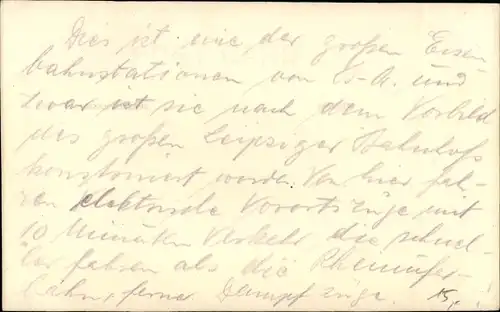 Dies ist eine der großen Eisen-
bahnstationen von Ls-A. und
zwar ist sie nach dem Vorbild
des großen Leipziger Bahnhofs
konstruiert worden. Von hier fah-
ren elektrische Vorortszüge mit
10 Minuten Verkehr, die schnel-
ler fahren als die Rheinufer-
bahn, ferner Dampfzüge.